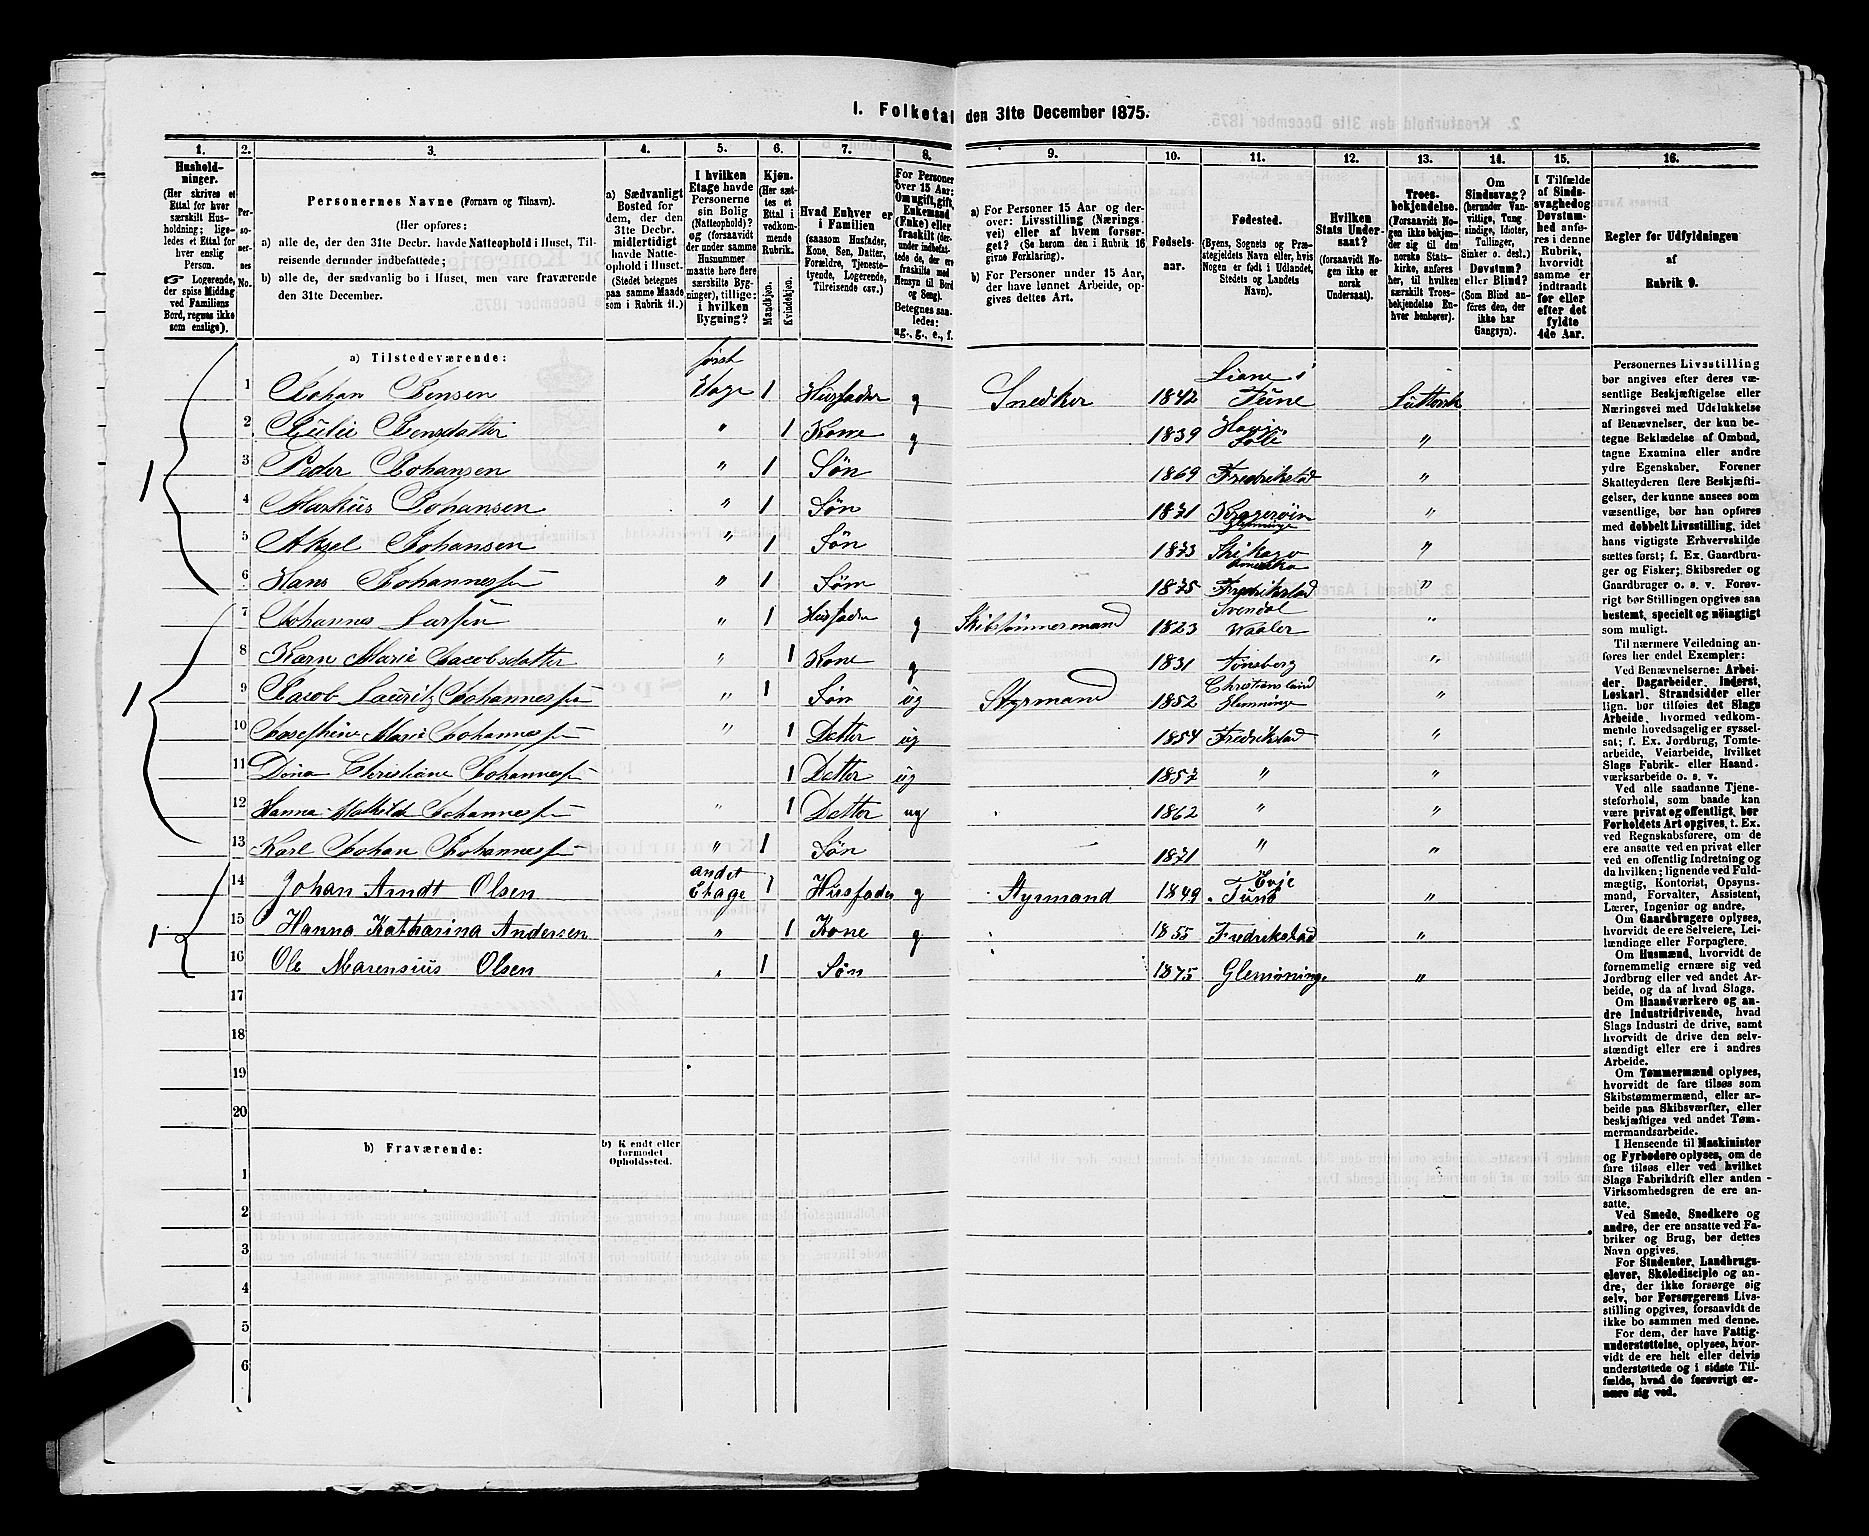 1. Folketal den 31te December 1875.
1. 2. 3. 4. 5. 6. 7. 8. 9. 10. 11. 12. 13. 14. 15. 16.
Husholdninger.
(Her skrives et
Ettal for hver
særskilt Husholdning;
ligeledes et Ettal for
hver enslig
Person.
Logerende,
der spise Middag
ved Familiens
Bord, regnes ikke
som enslige).
Personernes No.
Personernes Navne (Fornavn og Tilnavn).
(Her opføres:
a) alle de, der den 31te Decbr. havde Natteophold i Huset, Tilreisende derunder indbefattede;
b) alle de, der sædvanlig bo i Huset, men vare fraværende
den 31te December.
a) Sædvanligt
Bosted for
dem, der den
31te Decbr.
midlertidigt
havde Natteophold i Huset.
(Stedet betegnes
paa samme Maade
som i Rubrik 11.)
I hvilken
Etage havde
Personerne
sin Bolig
(Natteophold)?
og (forsaavidt
der under samme
Husnummer
maatte høre flere
særskilte Bygninger), tillige:
i hvilken
Bygning?
Kjøn.
(Her sættes et
Ettal i
vedkommende
Rubrik.
Mandkjøn.
Kvindekjøn.
Hvad Enhver er
i Familien
(saasom Husfader,
Kone, Søn, Datter,
Forældre, Tjenestetyende, Logerende,
Tilreisende csv.)
For Personer
over 15 Aar:
Om ugift, gift,
Enkemand
(Enke) eller
fraskilt (derunder indbefattede de, der ere
fraskilte med
Hensyn til Bord
og Seng).
Betegnes saaledes:
ug., g., e., f.
a) For Personer 15 Aar og derover: Livsstilling (Næringsvei) eller af hvem forsørget? (Se herom den i Rubrik 16
givne Forklaring).
b) For Personer under 15 Aar,
der have lønnet Arbeide, opgives dettes Art.
Fødselsaar.
Fødested.
(Byens, Sognets og Præstegjeldets Navn eller, hvis
Nogen er født i Udlandet,
Stedets og Landets
Navn).
Hvilken
Stats Undersaat?
(forsaavidt Nogen ikke er
norsk
Undersaat).
Troesbekjendelse.
(Forsaavidt Nogen ikke bekjender sig til den
norske Statskirke, anføres
her, til hvilken
særskilt Troesbekjendelse Enhver henhører).
Om
Sindssvag?
(herunder Vanvittige, Tungsindige, Idioter,
Tullinger,
Sinker o. desl.)
Døvstum?
eller Blind?
(Som Blind anføres den, der
ikke har
Gangsyn).
I Tilfælde
af Sindssvaghed og
Døvstumhed anføres i denne
Rubrik,
hvorvidt
samme er
indtraadt
før eller
efter det
fyldte
4de Aar.
Regler for Udfyldningen
af
Rubrik 9.
a) Tilstedeværende:
1 Johan Jensen første Etage 1 Husfader g Snedker 1842 Tune Luttersk
2 Julie Jensdatter " 1 Kone g 1839 "
3 Peder Johansen " 1 Søn 1869 Fredrikstad "
4 Markus Johansen " 1 Søn 1871 Kragerøen Glemminge "
5 Aksel Johansen " 1 Søn 1873 Shikago Amerika "
6 Hans Johannessen " 1 Søn 1875 Fredrikstad "
7 Johannes Larsen " 1 Husfader g Skibstømmermand 1823 Svendal Waaler "
8 Karn Marie Jacobsdatter " 1 Kone g 1831 Tønsberg "
9 Jacob Lauritz Johannessen " 1 Søn ug Styrmand 1852 Christianslund Glemminge "
10 Josefhine Marie Johannessen " 1 Datter ug 1854 Fredrikstad "
11 Dina Christiane Johannessen 1 Datter ug 1857 " "
12 Hanna Mathild Johannessen " 1 Datter ug 1862 " "
13 Karl Johan Johannessen " 1 Søn 1871 " "
14 Johan Arndt Olsen andet Etage 1 Husfader g Styrmand 1849 Evje Tune "
15 Hanna Katharina Andersen " 1 Kone g 1855 Fredrikstad "
16 Ole Marensius Olsen " 1 Søn 1875 Glemminge "
17
18
19
20
1
1
1
b) Fraværende:
b) Kjendt eller
formodet
Opholdssted.
1
2
3
4
5
6
Personernes Livsstilling
bør angives efter deres væsentlige Beskjæftigelse eller
Næringsvei med Udelukkelse
af Benævnelser, der kun betegne Beklædelse af Ombud,
tagne Examina eller andre
ydre Egenskaber. Forener
Skatteyderen flere Beskjæftigelser, der kunne ansees som
væsentlige, bør han opføres
med dobbelt Livsstilling, idet
hans vigtigste Erhvervskilde
sættes først; f. Ex. Gaardbruger og Fisker; Skibsreder og
Gaardbruger o. s. v. Forøvrigt bør Stillingen opgives saa
bestemt, specielt og nøiagtigt
som muligt.
Til nærmere Veiledning anføres her endel Exempler:
Ved Benævnelserne: Arbeider, Dagarbeider, Inderst,
Løskarl, Strandsidder eller
lign. bør tilføies det Slags
Arbeide, hvormed vedkommende hovedsagelig er sysselsat; f. Ex. Jordbrug, Tomtearbeide, Veiarbeide, hvilket
Slags Fabrik- eller Haandværksarbeide o. s. v.
Ved alle saadanne Tjenesteforhold, som baade kan
være privat og offentligt, bør
Forholdets Art opgives, t. Ex.
ved Regnskabsførere, om de
ere ansatte ved en privat eller
ved en offentlig Indretning og
da hvilken; lignende ved Fuldmægtig, Kontorist, Opsynsmand, Forvalter, Assistent,
Lærer, Ingeniør og andre.
Om Gaardbrugere oplyses,
hvorvidt de ere Selveiere, Leilændinge eller Forpagtere.
Om Husmænd, hvorvidt de
fornemmelig ernære sig ved
Jordbrug eller ved andet Arbeide, og da af hvad Slags.
Om Haandværkere og andre Industridrivende, hvad
Slags Industri de drive, samt
hvorvidt de drive den selvstændigt eller ere i andres
Arbeide.
Om Tømmermænd oplyses,
hvorvidt de fare tilsøs som
Skibstømmermænd, eller arbeide paa Skibsværfter, eller
beskjæftiges ved andet Tømmermandsarbeide.
I Henseende til Maskinister
og Fyrbødere oplyses, om de
fare tilsøs eller ved hvilket
Slags Fabrikdrift eller anden
Virksomhedsgren de ere ansatte.
Ved Smede, Snedkere og
andre, der ere ansatte ved Fabriker og Brug, bør dettes
Navn opgives.
For Studenter, Landbrugselever, Skoledisciple og andre, der ikke forsørge sig
selv, bør Forsørgerens Livsstilling opgives, forsaavidt de
ikke bo sammen med denne.
For dem, der have Fattigunderstøttelse, oplyses, hvorvidt de ere helt eller delvis
understøttede og i sidste Tilfælde, hvad de forøvrigt ernære sig ved.